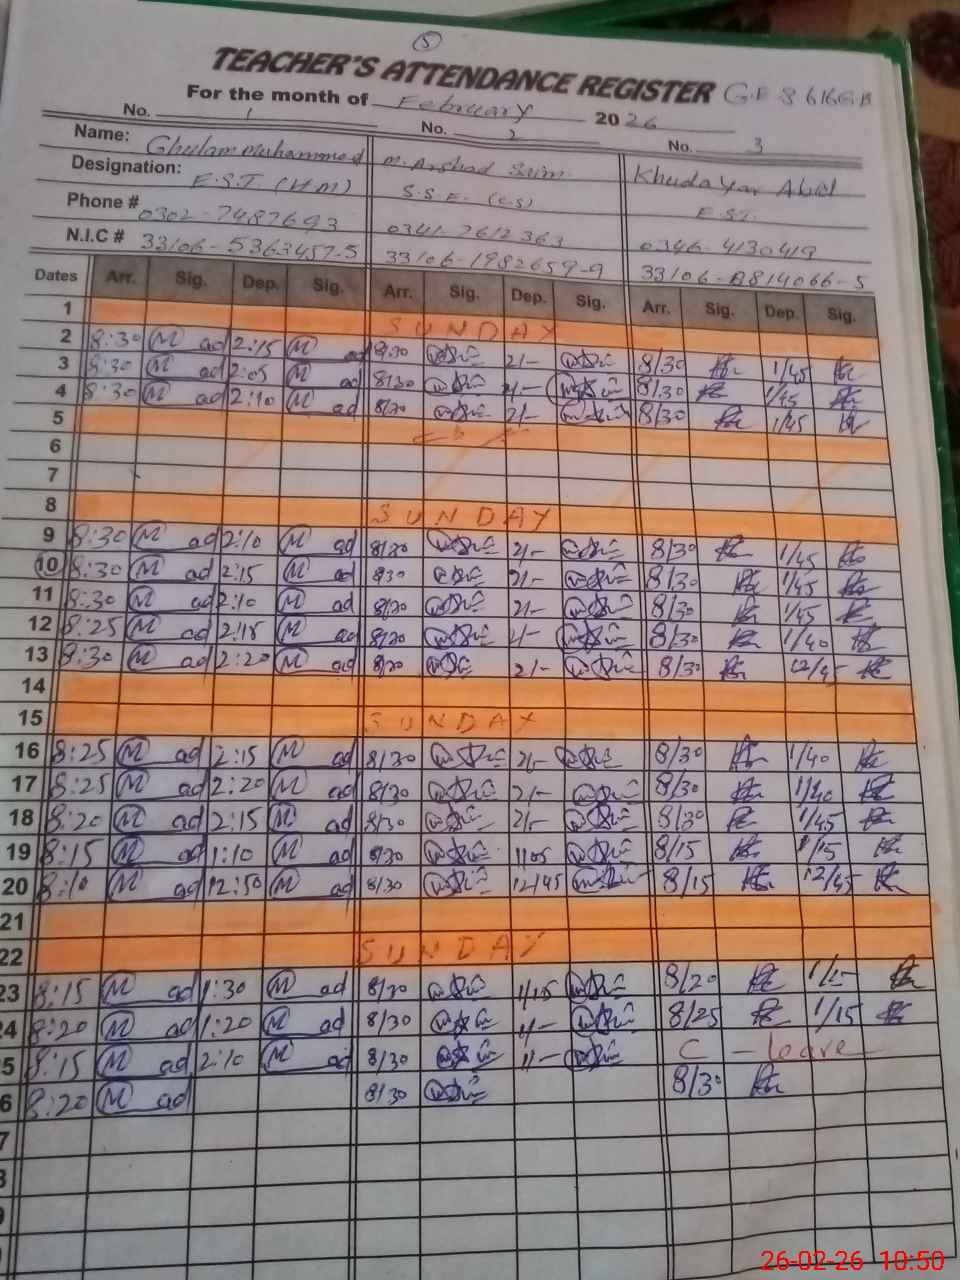 5
TEACHER'S ATTENDANCE REGISTER
For the month of February 2026
No. 1 No. 2 No. 3
Name: Ghulam Muhammad M. Arshad Khudayar Abid
Designation: E.S.T. (HM) S.S.E. E.S.T.
Phone # 0302-7487693 0341-7612363 0346-4130419
N.I.C # 33106-5363457-5 33106-1982659-9 33106-8814066-5
Dates Arr. Sig. Dep. Sig. Arr. Sig. Dep. Sig. Arr. Sig. Dep. Sig.
1 SUNDAY
2 8:30 M ad 2:15 M ad 8/30 2/- 8/30 1/45
3 8:30 M ad 2:05 M ad 8/30 2/- 8/30 1/45
4 8:30 M ad 2:10 M ad 8/30 2/- 8/30 1/45
5
6
7
8 SUNDAY
9 8:30 M ad 2:10 M ad 8/30 2/- 8/30 1/45
10 8:30 M ad 2:15 M ad 8/30 2/- 8/30 1/45
11 8:30 M ad 2:10 M ad 8/30 2/- 8/30 1/45
12 8:25 M ad 2:15 M ad 8/30 2/- 8/30 1/40
13 8:30 M ad 2:20 M ad 8/30 2/- 8/30 12/45
14
15 SUNDAY
16 8:25 M ad 2:15 M ad 8/30 2/- 8/30 1/40
17 8:25 M ad 2:20 M ad 8/30 2/- 8/30 1/40
18 8:20 M ad 2:15 M ad 8/30 2/- 8/30 1/45
19 8:15 M ad 1:10 M ad 8/30 1/05 8/15 1/15
20 8:10 M ad 12:50 M ad 8/30 12/45 8/15 12/45
21
22 SUNDAY
23 8:15 M ad 1:30 M ad 8/30 1/15 8/20 1/15
24 8:20 M ad 1:20 M ad 8/30 1/- 8/25 1/15
5 8:15 M ad 2:10 M ad 8/30 1/- C - leave
6 8:20 M ad 8/30 8/30
7
8
9
26-02-26 10:50